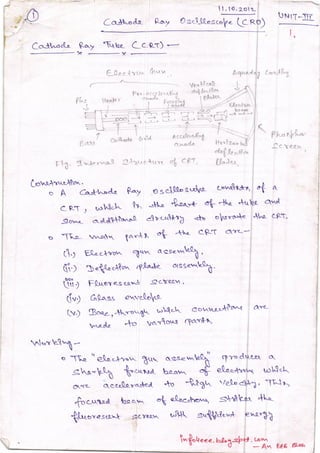 11.10.2012
① Cathode Ray Oscilloscope (CRO)
UNIT-III
1.
Cathode Ray Tube (CRT) —
Electron Gun
Aquadag Coating
Pre-accelerating anode
Vertical deflection Plates
Pins
Heater
Focusing anode
Electron beam
Base
Cathode
Grid
Accelerating anode
Horizontal deflection Plates
Phosphor Screen
Fig. Internal Structure of CRT.
Construction.
o A Cathode Ray Oscilloscope consists of a
CRT, which is the heart of the tube and
some additional circuitry to operate the CRT.
o The main parts of the CRT are —
(i.) Electron gun assembly.
(ii-) Deflection plate assembly.
(iii-) Fluorescent screen.
(iv) Glass envelope
(v.) Base, through which connections are
made to various parts.
Working —
o The "electron gun assembly" produces a
sharply focused beam of electrons which
are accelerated to high velocity. This
focused beam of electrons strikes the
fluorescent screen with sufficient energy
info4eee.blogspot.com
— An EEE Blog